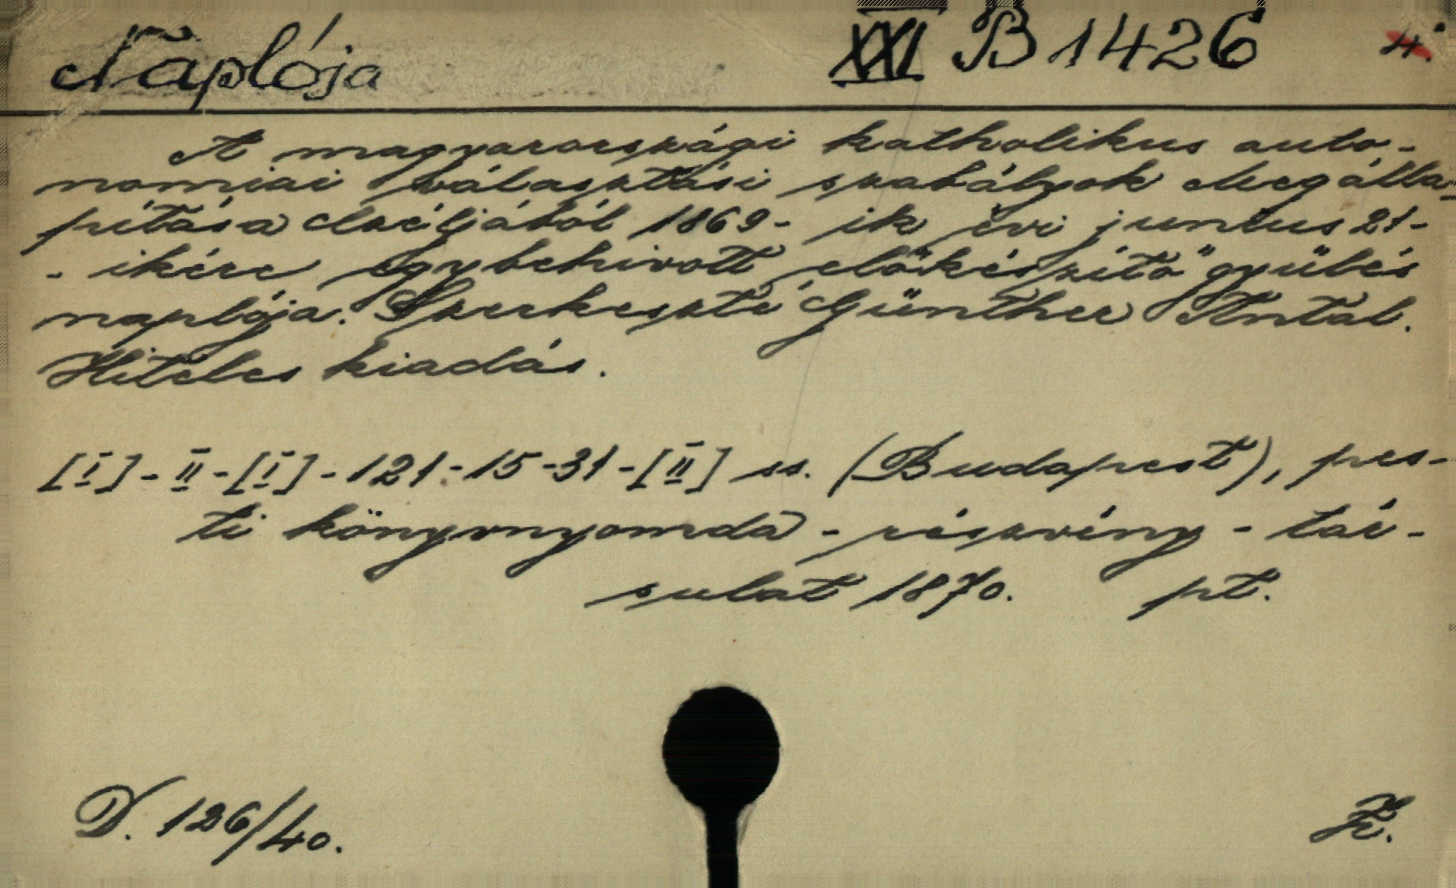 Naplója XXI B 1426 4.
A magyarországi katholikus auto-
nomiai választási szabályok Megálla-
pítása Czéljából 1869- ik évi junius 21-
- ikére egybehivott előkészítő gyülés
naplója. Szerkeszté Günther Antal.
Hiteles kiadás.
[I]-II-[I]-121-15-31-[II] ss. (Budapest), pes-
ti könyvnyomda - részvény - tár-
sulat 1870. pt.
D. 126/40.